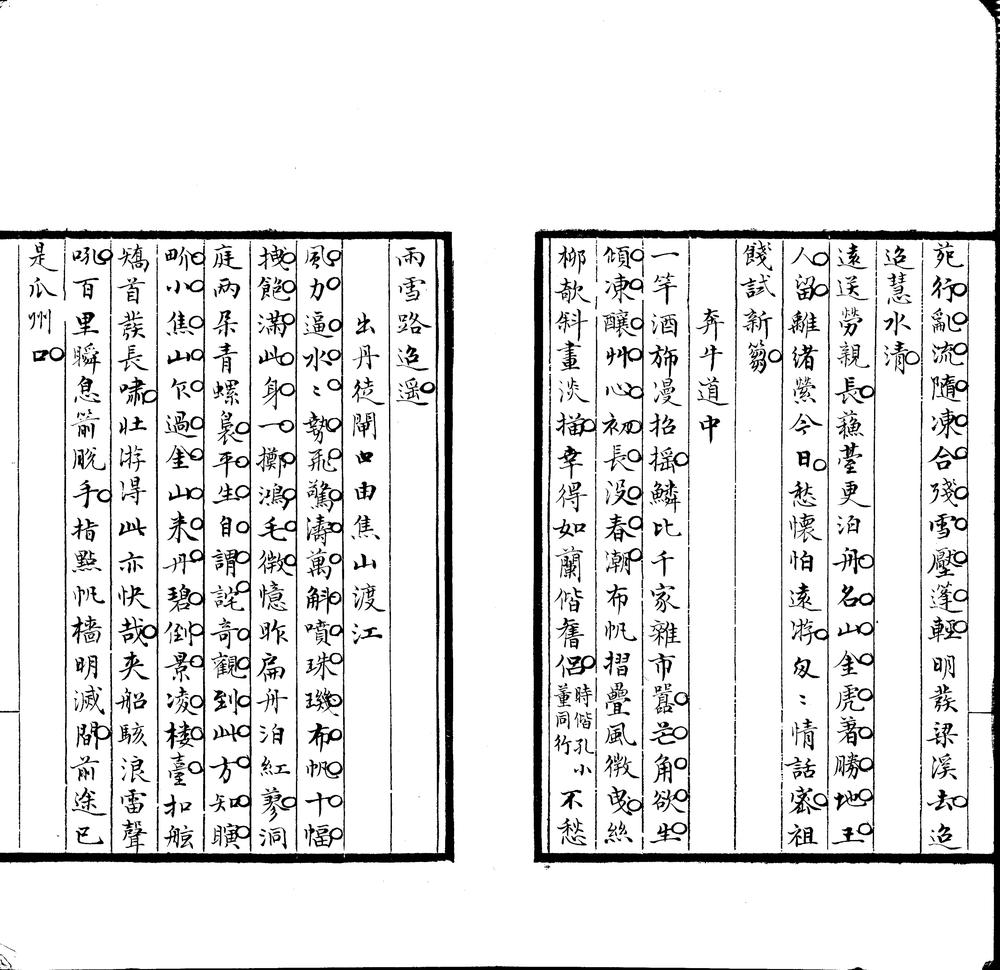 苑行亂流隨凍合殘雪壓蓬輕明發梁溪去迨
迨慧水清
遠送勞親長蘓臺更泊舟名山金虎著勝地王
人留離緒縈今日愁懷怕遠游匆〻情話密祖
餞試新篘
奔牛道中
一竿酒斾漫招摇鱗比千家雜市囂芒角欲生
傾凍釀艸心初長没春潮布帆摺疊風微曳絲
栁欹斜畫淡描幸得如蘭偕舊侶時偕孔小董同行不愁
雨雪路迢遥
出丹徒閘口由焦山渡江
風力逼水〻勢飛驚濤萬斛噴珠璣布帆十幅
拽飽滿此身一擲鴻毛微憶昨扁舟泊紅蓼洞
庭兩朵青螺裊平生自謂詫奇觀到此方知曠
眇小焦山乍過金山來丹碧倒景凌樓臺扣舷
矯首發長嘯壯游得此亦快哉夾船駭浪雷聲
吼百里瞬息箭脱手指點帆檣明滅間前途已
是瓜州口